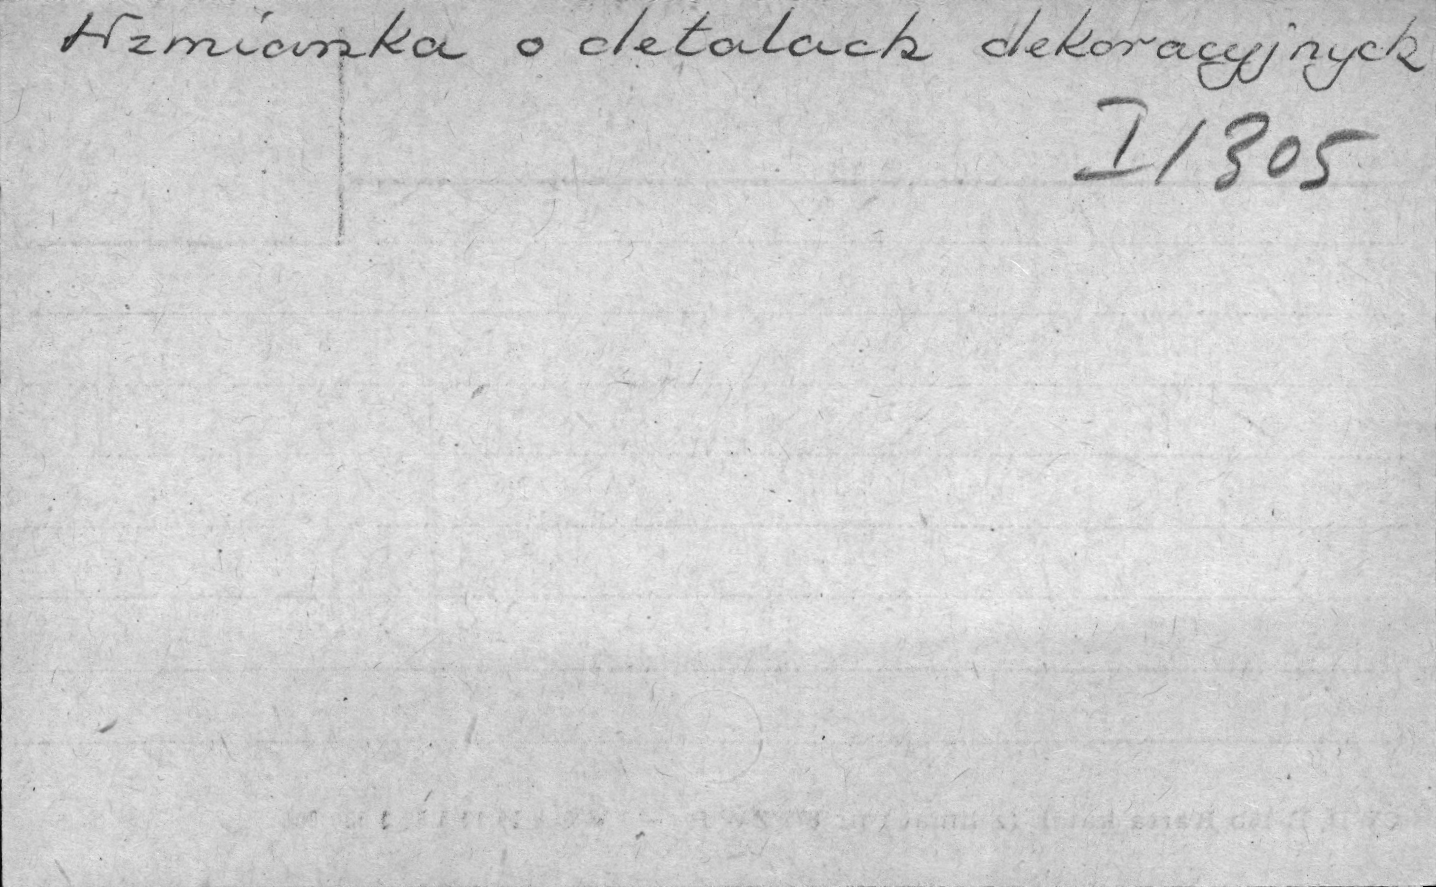 Wzmianka o detalach dekoracyjnych
I/305